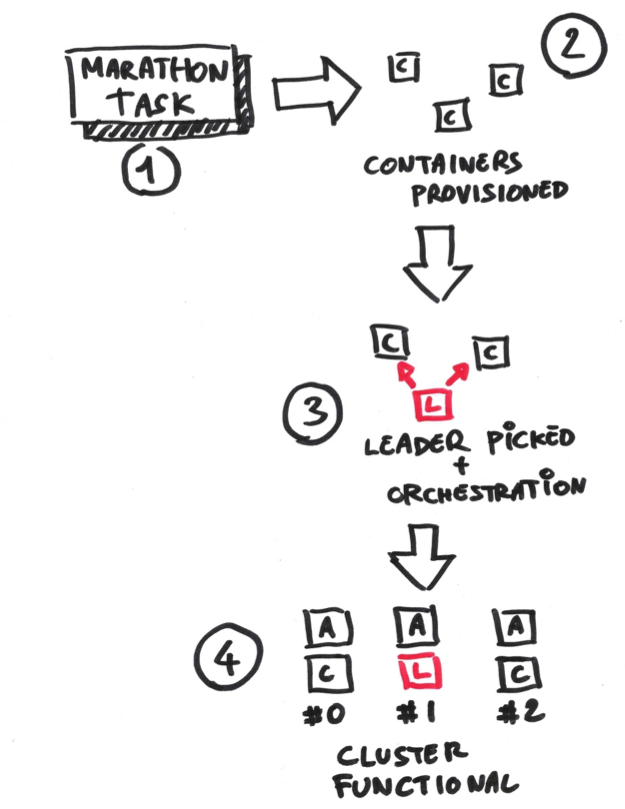 MARATHON
TASK
1
2
C
C
C
CONTAINERS
PROVISIONED
C
C
L
3
LEADER PICKED
+
ORCHESTRATION
4
A A A
C L C
#0 #1 #2
CLUSTER
FUNCTIONAL